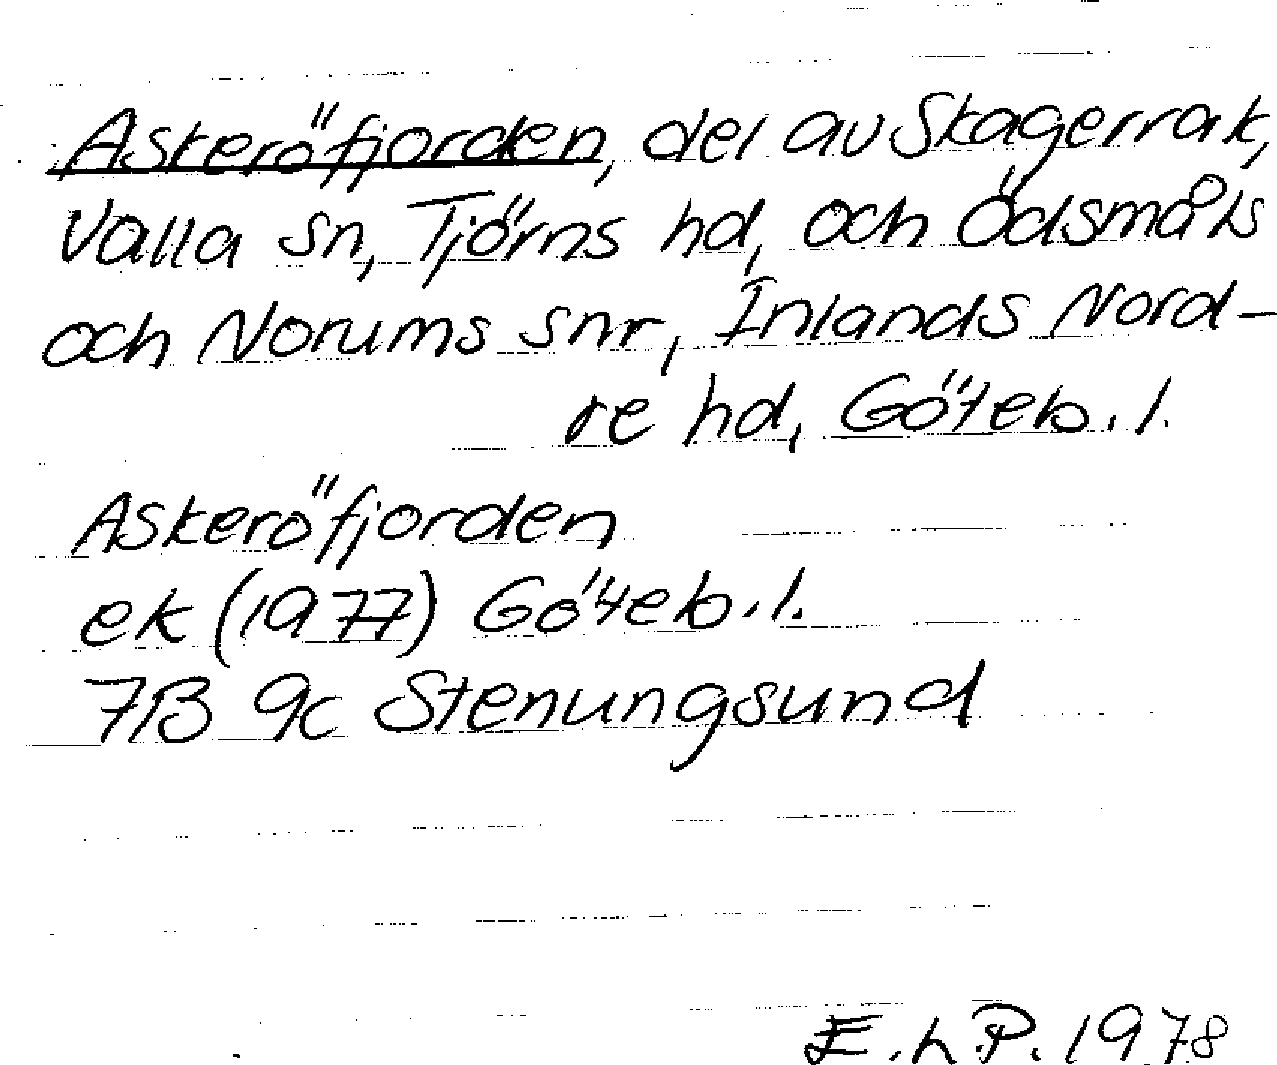 Askeröfjorden, del av Skagerrak,
Valla sn, Tjörns hd, och Ödsmåls
och Norums snr, Inlands Nord-
re hd, Göteb. l.
Askeröfjorden
ek (1977) Göteb. l.
7B 9c Stenungsund
E.h.P. 1978